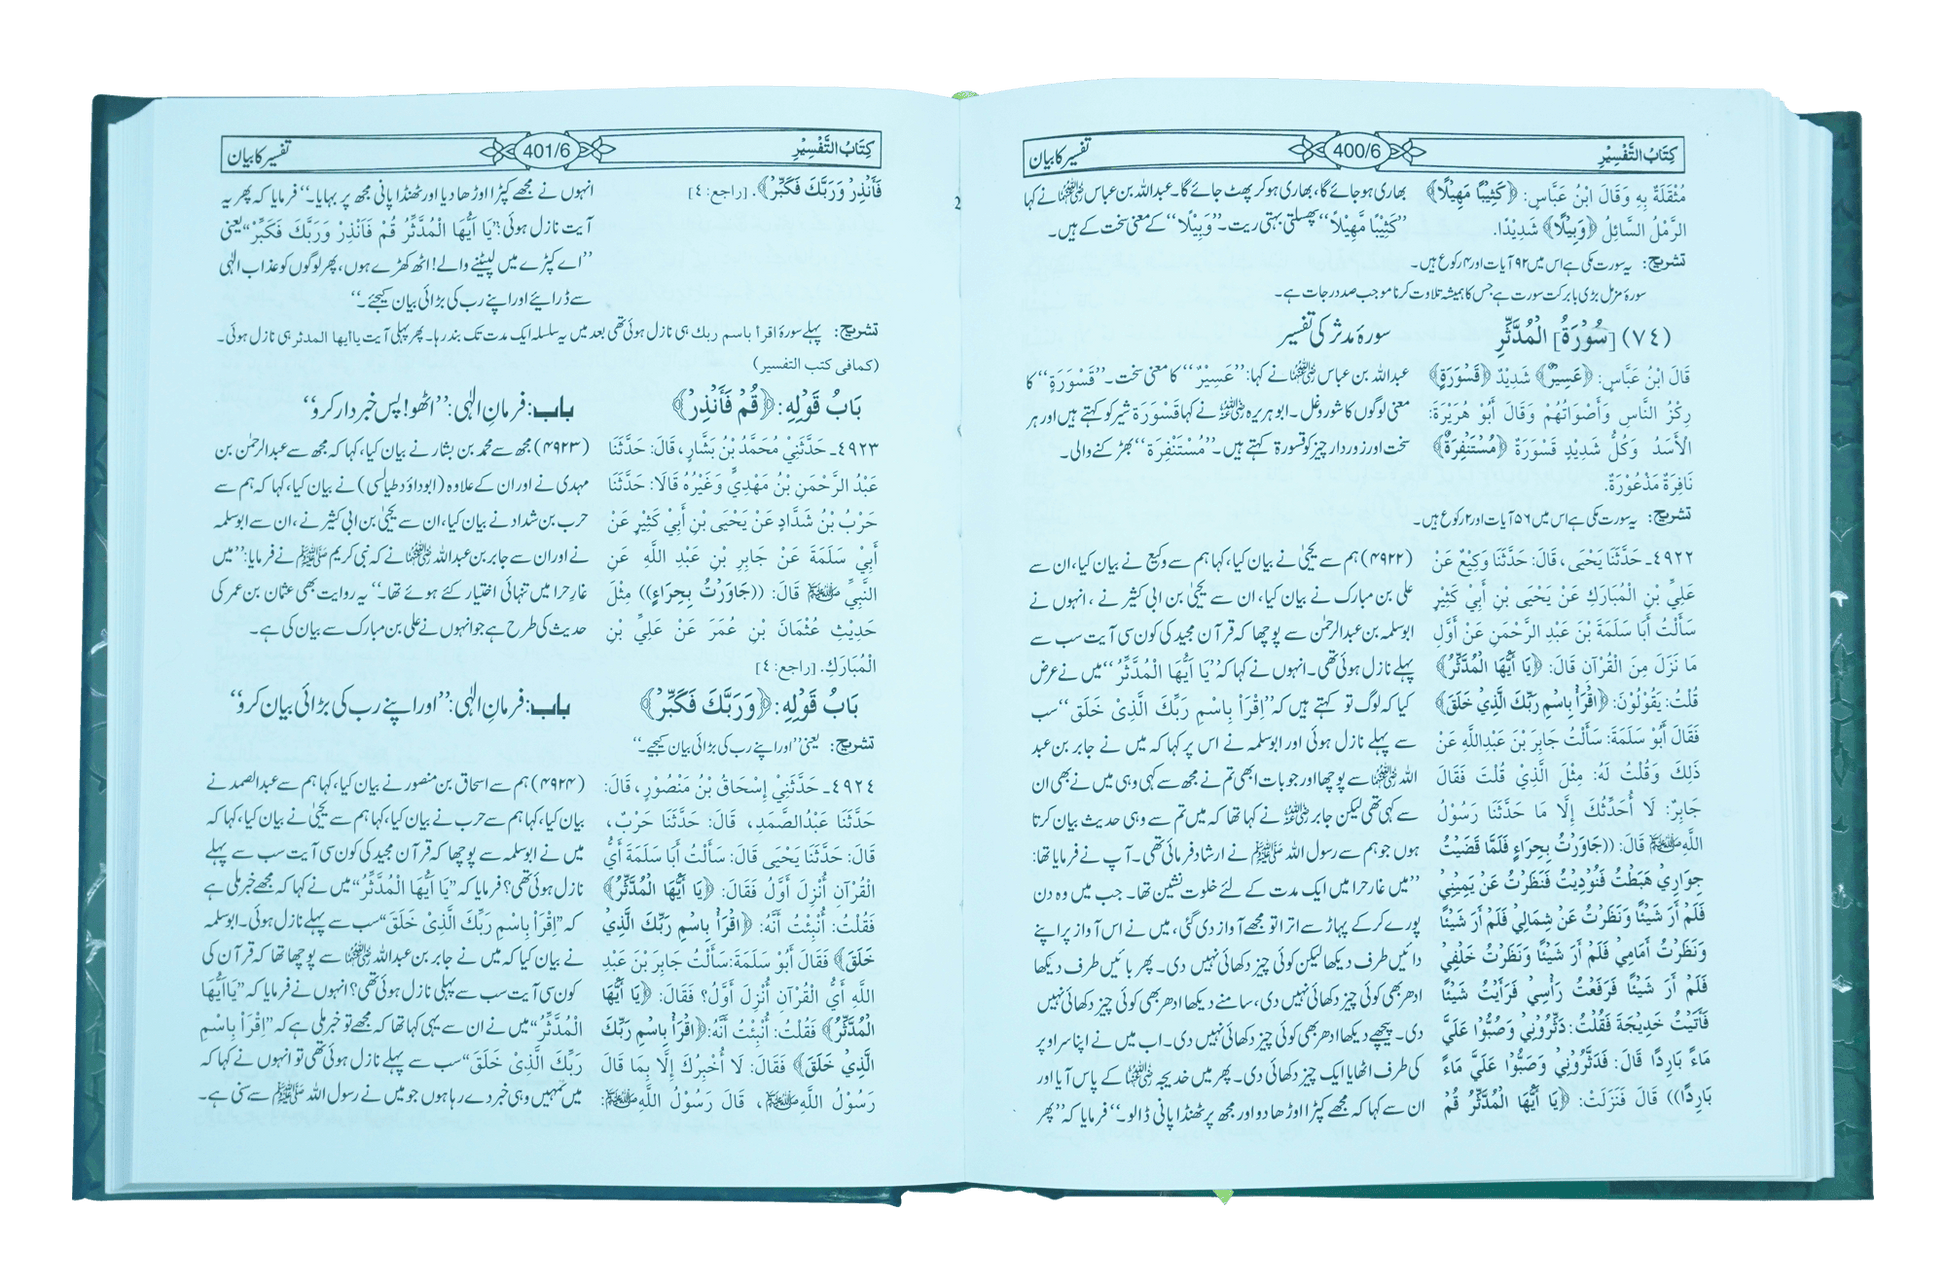 كِتَابُ التَّفْسِيْرِ 400/6 تفسیر کا بیان
مُثْقَلَةٌ بِهِ وَقَالَ ابْنُ عَبَّاسٍ: ﴿كَثِيْبًا مَهِيْلًا﴾
الرَّمْلُ السَّائِلُ ﴿وَبِيلًا﴾ شَدِيْدًا.
بھاری ہو جائے گا، بھاری ہو کر پھٹ جائے گا۔ عبداللہ بن عباس رضی اللہ عنہما نے کہا
’’كَثِيْبًا مَّهِيْلًا‘‘ پھسلتی بہتی ریت۔ ’’وَبِيْلًا‘‘ کے معنی سخت کے ہیں۔
تشریح: یہ سورت مکی ہے اس میں ۹۲ آیات اور ۴ رکوع ہیں۔
سورۂ مزمل بڑی بابرکت سورت ہے جس کا ہمیشہ تلاوت کرنا موجب صد درجات ہے۔
(٧٤) [سُوْرَةُ] الْمُدَّثِّرِ
سورۂ مدثر کی تفسیر
قَالَ ابْنُ عَبَّاسٍ: ﴿عَسِيْرٌ﴾ شَدِيْدٌ ﴿قَسْوَرَةٍ﴾
رِكْزُ النَّاسِ وَأَصْوَاتُهُمْ وَقَالَ أَبُوْ هُرَيْرَةَ:
الْأَسَدُ وَكُلُّ شَدِيْدٍ قَسْوَرَةٌ ﴿مُسْتَنْفِرَةٌ﴾
نَافِرَةٌ مَذْعُوْرَةٌ.
عبداللہ بن عباس رضی اللہ عنہما نے کہا: ’’عَسِيْرٌ‘‘ کا معنی سخت۔ ’’قَسْوَرَةٍ‘‘ کا
معنی لوگوں کا شور وغل۔ ابو ہریرہ رضی اللہ عنہ نے کہا قَسْوَرَة شیر کو کہتے ہیں اور ہر
سخت اور زوردار چیز کو قسورة کہتے ہیں۔ ’’مُسْتَنْفِرَة‘‘ بھڑکنے والی۔
تشریح: یہ سورت مکی ہے اس میں ۵۶ آیات اور ۲ رکوع ہیں۔
٤٩٢٢ـ حَدَّثَنَا يَحْيَى، قَالَ: حَدَّثَنَا وَكِيْعٌ عَنْ
عَلِيِّ بْنِ الْمُبَارَكِ عَنْ يَحْيَى بْنِ أَبِيْ كَثِيْرٍ
سَأَلْتُ أَبَا سَلَمَةَ بْنَ عَبْدِ الرَّحْمَنِ عَنْ أَوَّلِ
مَا نَزَلَ مِنَ الْقُرْآنِ قَالَ: ﴿يَا أَيُّهَا الْمُدَّثِّرُ﴾
قُلْتُ: يَقُوْلُوْنَ: ﴿اقْرَأْ بِاسْمِ رَبِّكَ الَّذِيْ خَلَقَ﴾
فَقَالَ أَبُوْ سَلَمَةَ: سَأَلْتُ جَابِرَ بْنَ عَبْدِاللَّهِ عَنْ
ذَلِكَ وَقُلْتُ لَهُ: مِثْلَ الَّذِيْ قُلْتَ فَقَالَ
جَابِرٌ: لَا أُحَدِّثُكَ إِلَّا مَا حَدَّثَنَا رَسُوْلُ
اللَّهِ ﷺ قَالَ: ((جَاوَرْتُ بِحِرَاءٍ فَلَمَّا قَضَيْتُ
جِوَارِيْ هَبَطْتُ فَنُوْدِيْتُ فَنَظَرْتُ عَنْ يَمِيْنِيْ
فَلَمْ أَرَ شَيْئًا وَنَظَرْتُ عَنْ شِمَالِيْ فَلَمْ أَرَ شَيْئًا
وَنَظَرْتُ أَمَامِيْ فَلَمْ أَرَ شَيْئًا وَنَظَرْتُ خَلْفِيْ
فَلَمْ أَرَ شَيْئًا فَرَفَعْتُ رَأْسِيْ فَرَأَيْتُ شَيْئًا
فَأَتَيْتُ خَدِيْجَةَ فَقُلْتُ: دَثِّرُوْنِيْ وَصُبُّوْا عَلَيَّ
مَاءً بَارِدًا قَالَ: فَدَثَّرُوْنِيْ وَصَبُّوْا عَلَيَّ مَاءً
بَارِدًا)) قَالَ فَنَزَلَتْ: ﴿يَا أَيُّهَا الْمُدَّثِّرُ قُمْ
(۴۹۲۲) ہم سے یحییٰ نے بیان کیا، کہا ہم سے وکیع نے بیان کیا، ان سے
علی بن مبارک نے بیان کیا، ان سے یحییٰ بن ابی کثیر نے، انہوں نے
ابوسلمہ بن عبدالرحمٰن سے پوچھا کہ قرآن مجید کی کون سی آیت سب سے
پہلے نازل ہوئی تھی۔ انہوں نے کہا کہ ’’يَا أَيُّهَا الْمُدَّثِّرُ‘‘ میں نے عرض
کیا کہ لوگ تو کہتے ہیں کہ ’’اِقْرَأْ بِاسْمِ رَبِّكَ الَّذِيْ خَلَقَ‘‘ سب
سے پہلے نازل ہوئی اور ابوسلمہ نے اس پر کہا کہ میں نے جابر بن عبد
اللہ رضی اللہ عنہما سے پوچھا اور جو بات ابھی تم نے مجھ سے کہی وہی میں نے بھی ان
سے کہی تھی لیکن جابر رضی اللہ عنہ نے کہا تھا کہ میں تم سے وہی حدیث بیان کرتا
ہوں جو ہم سے رسول اللہ ﷺ نے ارشاد فرمائی تھی۔ آپ نے فرمایا تھا:
’’میں غار حرا میں ایک مدت کے لئے خلوت نشین تھا۔ جب میں وہ دن
پورے کر کے پہاڑ سے اترا تو مجھے آواز دی گئی، میں نے اس آواز پر اپنے
دائیں طرف دیکھا لیکن کوئی چیز دکھائی نہیں دی۔ پھر بائیں طرف دیکھا
ادھر بھی کوئی چیز دکھائی نہیں دی، سامنے دیکھا ادھر بھی کوئی چیز دکھائی نہیں
دی۔ پیچھے دیکھا ادھر بھی کوئی چیز دکھائی نہیں دی۔ اب میں نے اپنا سر اوپر
کی طرف اٹھایا ایک چیز دکھائی دی۔ پھر میں خدیجہ رضی اللہ عنہا کے پاس آیا اور
ان سے کہا کہ مجھے کپڑا اوڑھا دو اور مجھ پر ٹھنڈا پانی ڈالو۔‘‘ فرمایا کہ ’’پھر
كِتَابُ التَّفْسِيْرِ 401/6 تفسیر کا بیان
فَأَنْذِرْ وَرَبَّكَ فَكَبِّرْ﴾. [راجع: ٤]
انہوں نے مجھے کپڑا اوڑھا دیا اور ٹھنڈا پانی مجھ پر بہایا۔‘‘ فرمایا کہ پھر یہ
آیت نازل ہوئی: ’’يَا أَيُّهَا الْمُدَّثِّرُ قُمْ فَأَنْذِرْ وَرَبَّكَ فَكَبِّرْ‘‘ یعنی
’’اے کپڑے میں لپیٹنے والے! اٹھ کھڑے ہوں، پھر لوگوں کو عذاب الٰہی
سے ڈرایئے اور اپنے رب کی بڑائی بیان کیجئے۔‘‘
تشریح: پہلے سورۂ اقرأ باسم ربك ہی نازل ہوئی تھی بعد میں یہ سلسلہ ایک مدت تک بند رہا۔ پھر پہلی آیت یاأیها المدثر ہی نازل ہوئی۔
(کمافی کتب التفسیر)
بَابُ قَوْلِهِ: ﴿قُمْ فَأَنْذِرْ﴾
باب: فرمانِ الٰہی: ’’اٹھو! پس خبردار کرو‘‘
٤٩٢٣ـ حَدَّثَنِيْ مُحَمَّدُ بْنُ بَشَّارٍ، قَالَ: حَدَّثَنَا
عَبْدُ الرَّحْمَنِ بْنُ مَهْدِيٍّ وَغَيْرُهُ قَالَا: حَدَّثَنَا
حَرْبُ بْنُ شَدَّادٍ عَنْ يَحْيَى بْنِ أَبِيْ كَثِيْرٍ عَنْ
أَبِيْ سَلَمَةَ عَنْ جَابِرِ بْنِ عَبْدِ اللَّهِ عَنِ
النَّبِيِّ ﷺ قَالَ: ((جَاوَرْتُ بِحِرَاءٍ)) مِثْلَ
حَدِيْثِ عُثْمَانَ بْنِ عُمَرَ عَنْ عَلِيِّ بْنِ
الْمُبَارَكِ. [راجع: ٤]
(۴۹۲۳) مجھ سے محمد بن بشار نے بیان کیا، کہا کہ مجھ سے عبدالرحمٰن بن
مہدی نے اور ان کے علاوہ (ابوداؤد طیالسی) نے بیان کیا، کہا کہ ہم سے
حرب بن شداد نے بیان کیا، ان سے یحییٰ بن ابی کثیر نے، ان سے ابوسلمہ
نے اور ان سے جابر بن عبداللہ رضی اللہ عنہما نے کہ نبی کریم ﷺ نے فرمایا: ’’میں
غار حرا میں تنہائی اختیار کئے ہوئے تھا۔‘‘ یہ روایت بھی عثمان بن عمر کی
حدیث کی طرح ہے جو انہوں نے علی بن مبارک سے بیان کی ہے۔
بَابُ قَوْلِهِ: ﴿وَرَبَّكَ فَكَبِّرْ﴾
باب: فرمانِ الٰہی: ’’اور اپنے رب کی بڑائی بیان کرو‘‘
تشریح: یعنی ’’اور اپنے رب کی بڑائی بیان کیجیے۔‘‘
٤٩٢٤ـ حَدَّثَنِيْ إِسْحَاقُ بْنُ مَنْصُوْرٍ، قَالَ:
حَدَّثَنَا عَبْدُالصَّمَدِ، قَالَ: حَدَّثَنَا حَرْبٌ،
قَالَ: حَدَّثَنَا يَحْيَى قَالَ: سَأَلْتُ أَبَا سَلَمَةَ أَيُّ
الْقُرْآنِ أُنْزِلَ أَوَّلُ فَقَالَ: ﴿يَا أَيُّهَا الْمُدَّثِّرُ﴾
فَقُلْتُ: أُنْبِئْتُ أَنَّهُ: ﴿اقْرَأْ بِاسْمِ رَبِّكَ الَّذِيْ
خَلَقَ﴾ فَقَالَ أَبُوْ سَلَمَةَ: سَأَلْتُ جَابِرَ بْنَ عَبْدِ
اللَّهِ أَيُّ الْقُرْآنِ أُنْزِلَ أَوَّلُ؟ فَقَالَ: ﴿يَا أَيُّهَا
الْمُدَّثِّرُ﴾ فَقُلْتُ: أُنْبِئْتُ أَنَّهُ: ﴿اقْرَأْ بِاسْمِ رَبِّكَ
الَّذِيْ خَلَقَ﴾ فَقَالَ: لَا أُخْبِرُكَ إِلَّا بِمَا قَالَ
رَسُوْلُ اللَّهِ ﷺ، قَالَ رَسُوْلُ اللَّهِ ﷺ:
(۴۹۲۴) ہم سے اسحاق بن منصور نے بیان کیا، کہا ہم سے عبدالصمد نے
بیان کیا، کہا ہم سے حرب نے بیان کیا، کہا ہم سے یحییٰ نے بیان کیا، کہا کہ
میں نے ابوسلمہ سے پوچھا کہ قرآن مجید کی کون سی آیت سب سے پہلے
نازل ہوئی تھی؟ فرمایا کہ ’’يَا أَيُّهَا الْمُدَّثِّرُ‘‘ میں نے کہا کہ مجھے خبر ملی ہے
کہ ’’اِقْرَأْ بِاسْمِ رَبِّكَ الَّذِيْ خَلَقَ‘‘ سب سے پہلے نازل ہوئی۔ ابوسلمہ
نے بیان کیا کہ میں نے جابر بن عبداللہ رضی اللہ عنہما سے پوچھا تھا کہ قرآن کی
کون سی آیت سب سے پہلی نازل ہوئی تھی؟ انہوں نے فرمایا کہ ’’يَاأَيُّهَا
الْمُدَّثِّرُ‘‘ میں نے ان سے یہی کہا تھا کہ مجھے تو خبر ملی ہے کہ ’’اِقْرَأْ بِاسْمِ
رَبِّكَ الَّذِيْ خَلَقَ‘‘ سب سے پہلے نازل ہوئی تھی تو انہوں نے کہا کہ
میں تمہیں وہی خبر دے رہا ہوں جو میں نے رسول اللہ ﷺ سے سنی ہے۔